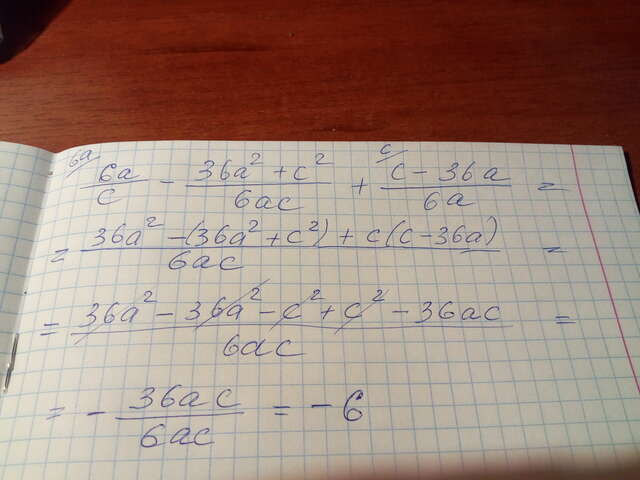 6a/ 6a/c - (36a² + c²)/6ac + c/ (c - 36a)/6a =
= (36a² - (36a² + c²) + c(c - 36a))/6ac =
= (36a² - 36a² - c² + c² - 36ac)/6ac =
= - 36ac/6ac = - 6